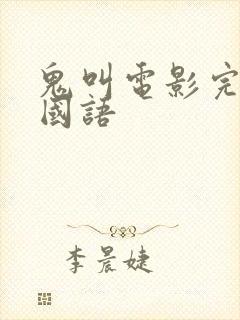 鬼叫電影完
國語
李晨婕